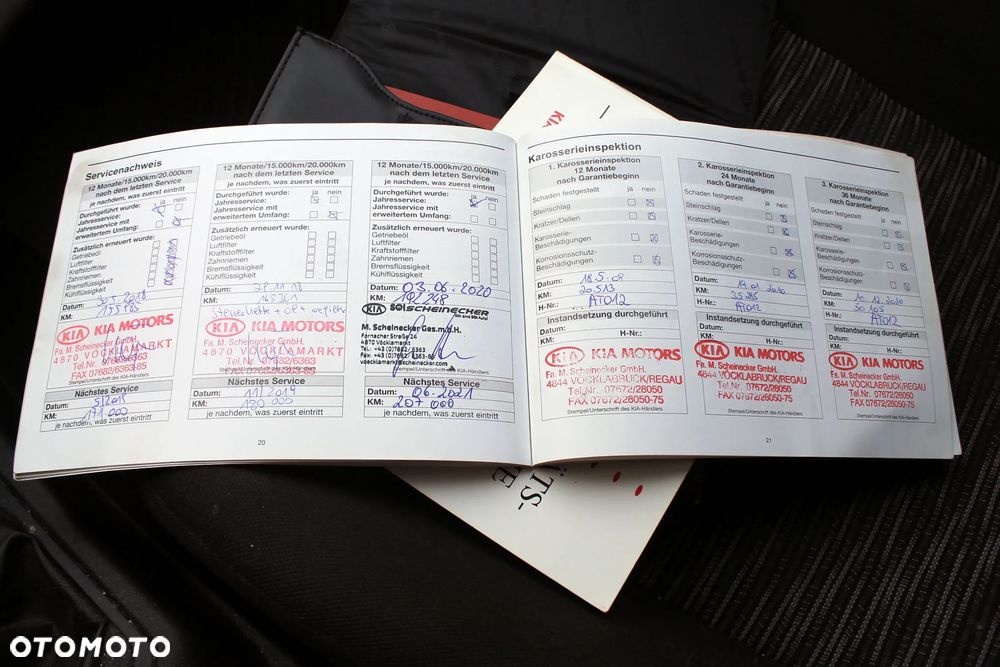 Servicenachweis
12 Monate/15.000km/20.000km
nach dem letzten Service
je nachdem, was zuerst eintritt
Durchgeführt wurde: ja nein
Jahresservice:
Jahresservice mit
erweitertem Umfang:
Zusätzlich erneuert wurde:
Getriebeöl
Luftfilter
Kraftstofffilter
Zahnriemen
Bremsflüssigkeit
Kühlflüssigkeit
Datum:
KM:
KIA KIA MOTORS
Fa. M. Scheinecker GmbH.
4870 VÖCKLAMARKT
Tel.Nr. 07682/6363
FAX 07682/6363-85
Stempel/Unterschrift des KIA-Händlers
Nächstes Service
Datum:
KM: 171.000
je nachdem, was zuerst eintritt
12 Monate/15.000km/20.000km
nach dem letzten Service
je nachdem, was zuerst eintritt
Durchgeführt wurde: ja nein
Jahresservice:
Jahresservice mit
erweitertem Umfang:
Zusätzlich erneuert wurde:
Getriebeöl
Luftfilter
Kraftstofffilter
Zahnriemen
Bremsflüssigkeit
Kühlflüssigkeit
Datum:
KM: 165361
KIA KIA MOTORS
Fa. M. Scheinecker GmbH.
4870 VÖCKLAMARKT
Tel.Nr. 07682/6363
FAX 07682/6363-85
Stempel/Unterschrift des KIA-Händlers
Nächstes Service
Datum: 11/2019
KM: 180 000
je nachdem, was zuerst eintritt
20
12 Monate/15.000km/20.000km
nach dem letzten Service
je nachdem, was zuerst eintritt
Durchgeführt wurde: ja nein
Jahresservice:
Jahresservice mit
erweitertem Umfang:
Zusätzlich erneuert wurde:
Getriebeöl
Luftfilter
Kraftstofffilter
Zahnriemen
Bremsflüssigkeit
Kühlflüssigkeit
Datum: 03.06.2020
KM: 192248
KIA SCHEINECKER
M. Scheinecker Ges.m.b.H.
Fornacher Straße 24
4870 Vöcklamarkt
Tel.: +43 (0)7682/6363
Fax: +43 (0)7682/6363-85
voecklamarkt@scheinecker.com
Stempel/Unterschrift des KIA-Händlers
Nächstes Service
Datum: 06.2021
KM: 207 000
je nachdem, was zuerst eintritt
Karosserieinspektion
1. Karosserieinspektion
12 Monate
nach Garantiebeginn
Schaden festgestellt ja nein
Steinschlag
Kratzer/Dellen
Karosserie-
Beschädigungen
Korrosionsschutz-
Beschädigungen
Datum: 18.5.09
KM: 20.513
H-Nr.: AT012
Instandsetzung durchgeführt
Datum:
KM: H-Nr.:
KIA KIA MOTORS
Fa. M. Scheinecker GmbH.
4844 VÖCKLABRUCK/REGAU
Tel.Nr. 07672/28050
FAX 07672/28050-75
Stempel/Unterschrift des KIA-Händlers
2. Karosserieinspektion
24 Monate
nach Garantiebeginn
Schaden festgestellt ja nein
Steinschlag
Kratzer/Dellen
Karosserie-
Beschädigungen
Korrosionsschutz-
Beschädigungen
Datum: 19.01.2010
KM:
H-Nr.: AT012
Instandsetzung durchgeführt
Datum:
KM: H-Nr.:
KIA KIA MOTORS
Fa. M. Scheinecker GmbH.
4844 VÖCKLABRUCK/REGAU
Tel.Nr. 07672/28050
FAX 07672/28050-75
Stempel/Unterschrift des KIA-Händlers
21
3. Karosserieinspektion
36 Monate
nach Garantiebeginn
Schaden festgestellt ja nein
Steinschlag
Kratzer/Dellen
Karosserie-
Beschädigungen
Korrosionsschutz-
Beschädigungen
Datum: 10.12.2010
KM: 50105
H-Nr.: AT012
Instandsetzung durchgeführt
Datum:
KM: H-Nr.:
KIA KIA MOTORS
Fa. M. Scheinecker GmbH.
4844 VÖCKLABRUCK/REGAU
Tel.Nr. 07672/28050
FAX 07672/28050-75
Stempel/Unterschrift des KIA-Händlers
OTOMOTO